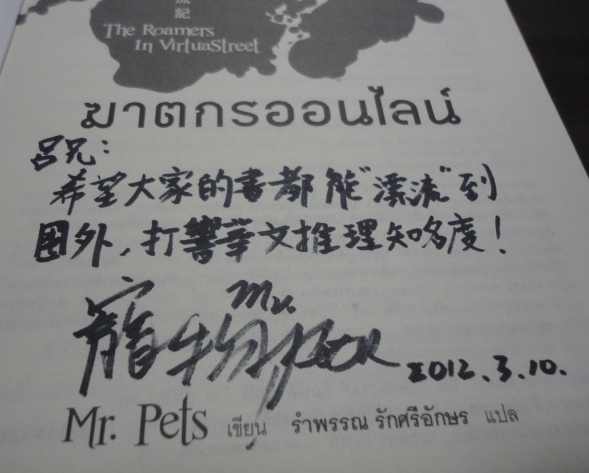 流記
The Roamers
In VirtuaStreet
ฆาตกรออนไลน์
呂兄：
希望大家的書都能"漂流"到
國外，打響華文推理知名度！
寵物 Mr. Pets 2012.3.10.
Mr. Pets เขียน รำพรรณ รักศรีอักษร แปล